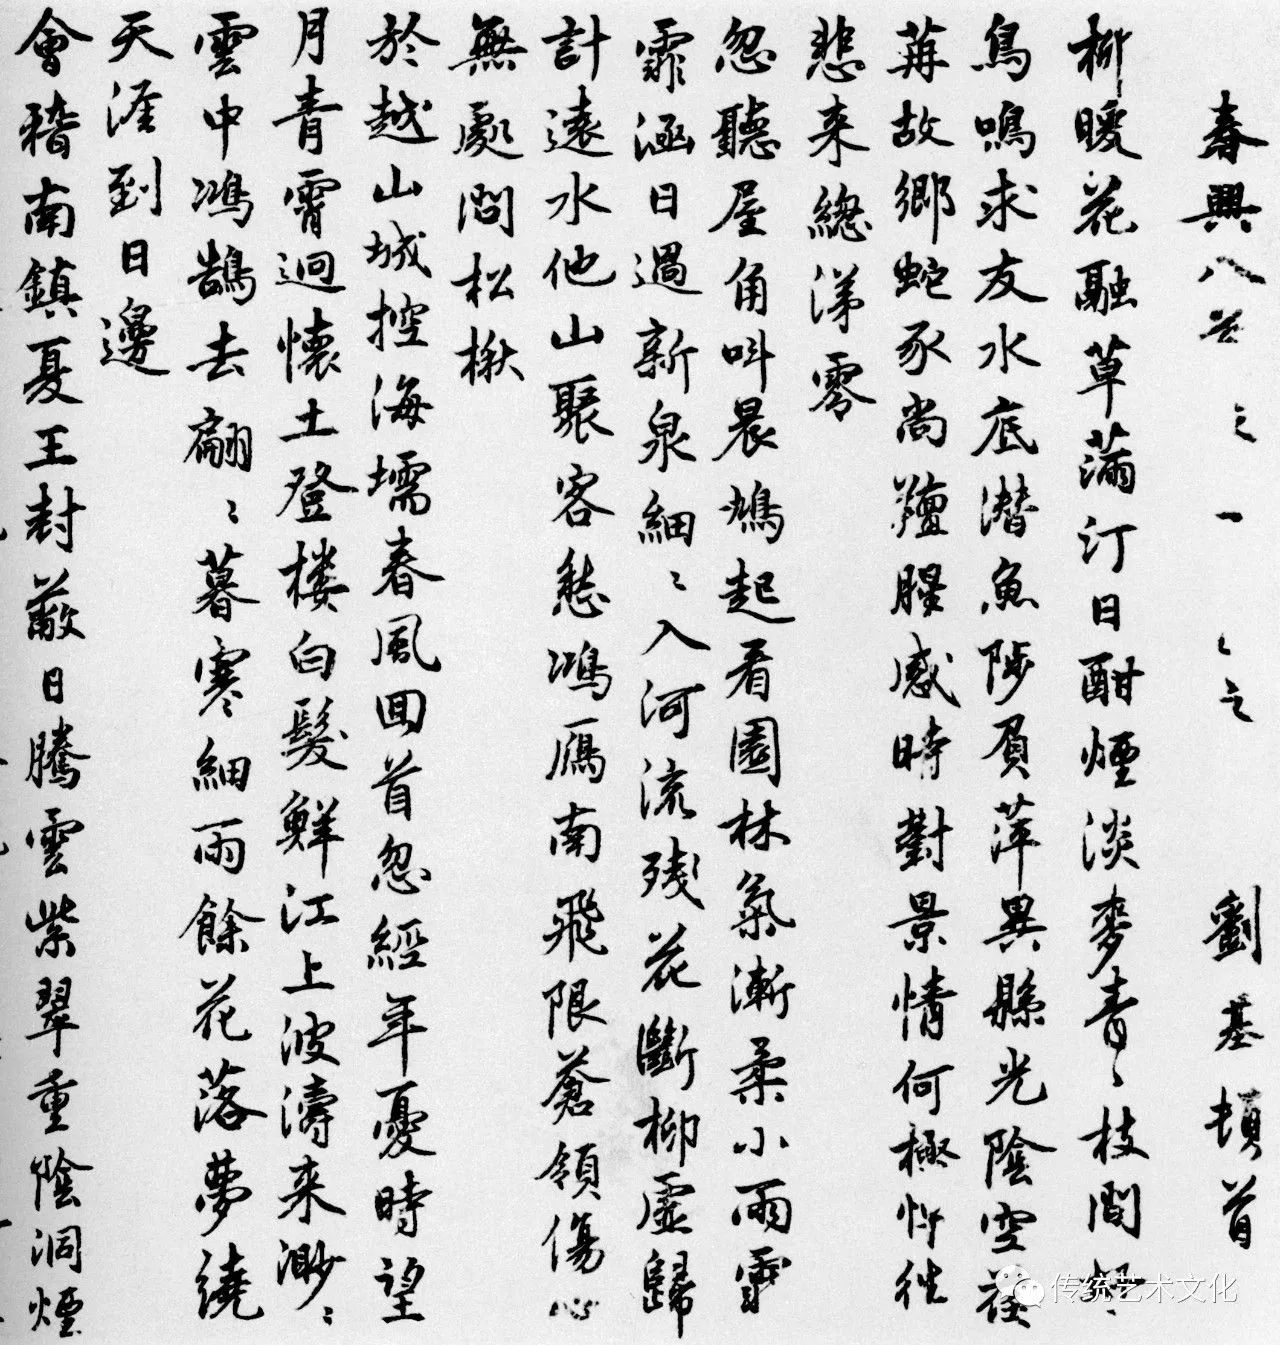 春興八首
劉基頓首
柳暖花融草滿汀日酣煙淡麥青〻枝間
鳥鳴求友水底潛魚陟負萍異縣光陰空荏
苒故鄉蛇豕尚羶腥感時對景情何極忤往
悲来總涕零
忽聽屋角叫晨鳩起看園林氣漸柔小雨霏
霏涵日過新泉細〻入河流残花斷柳虛歸
計遠水他山聚客愁鴻雁南飛限蒼領傷心
無處問松楸
於越山城控海壖春風回首忽經年憂時望
月青霄迥懷土登楼白髮鮮江上波濤来渺〻
雲中鴻鵠去翩〻暮寒細雨餘花落夢繞
天涯到日邊
會稽南鎮夏王封蔽日騰雲紫翠重陰洞煙
传统艺术文化